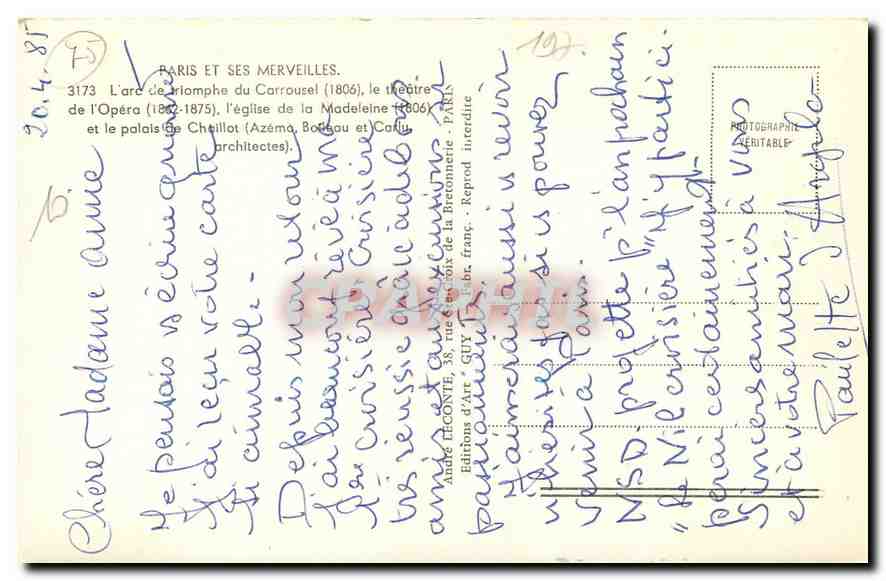 PARIS ET SES MERVEILLES.
3173 L'arc de triomphe du Carrousel (1806), le théâtre
de l'Opéra (1862-1875), l'église de la Madeleine (1806)
et le palais de Chaillot (Azéma, Boileau et Carlu,
architectes).
André LECONTE, 38, rue Ste-Croix de la Bretonnerie - PARIS
Editions d'Art "GUY" - Fabr. franç. - Reprod interdite
PHOTOGRAPHIE
VÉRITABLE
CPAPHIL
75
20.4.85
Chère Madame Anne
Je pensais vs écrire quand
j'ai reçu votre carte
si aimable -
Depuis mon retour
j'ai beaucoup rêvé à ma
1ère croisière. Croisière
très réussie grâce à de bons
amis et aux excursions si
passionnants.
J'aimerais aussi vs revoir
n'hésitez pas si vs pouvez
venir à Paris.
NSD projette p' l'an prochain
"le Nil croisière" J'y partici
perai certainement
Sincères amitiés à vous
et à votre mari.
Paulette